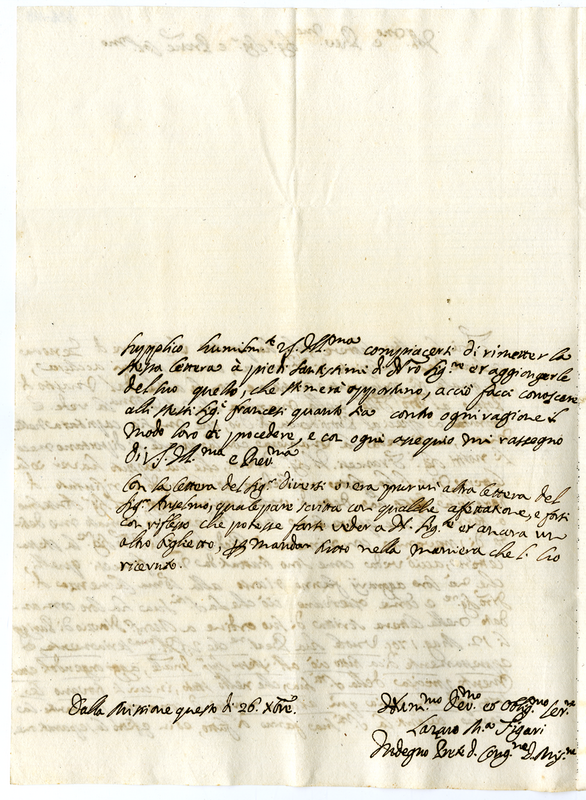 supplico humilm.te V.S. Ill.ma compiacersi di rimetter la
stessa lettera à piedi santissimi di N.ro Sig.re et aggiongerle
del suo quello, che stimerà opportuno, acciò facci conoscere
alli stessi Sig.ri francesi quanto sia contro ogni ragione il
modo loro di procedere, e con ogni ossequio mi rassegno
di V.S. Ill.ma e Rev.ma
Con la lettera del Sig.r Diverti vi era pur un altra lettera del
Sig.r Anselmo, quale pare scritta con qualche
con riflesso che potesse farsi veder a N. Sig.re et ancora un
altro biglietto, mandar tutto nella maniera che l'ho
ricevuto.
Dalla Missione questo dì 26. Xbre.
Devo.mo et Oblig.mo Ser.re
Lazaro M.a Figari
Indegno Prete d. Cong.ne d. Miss.ne